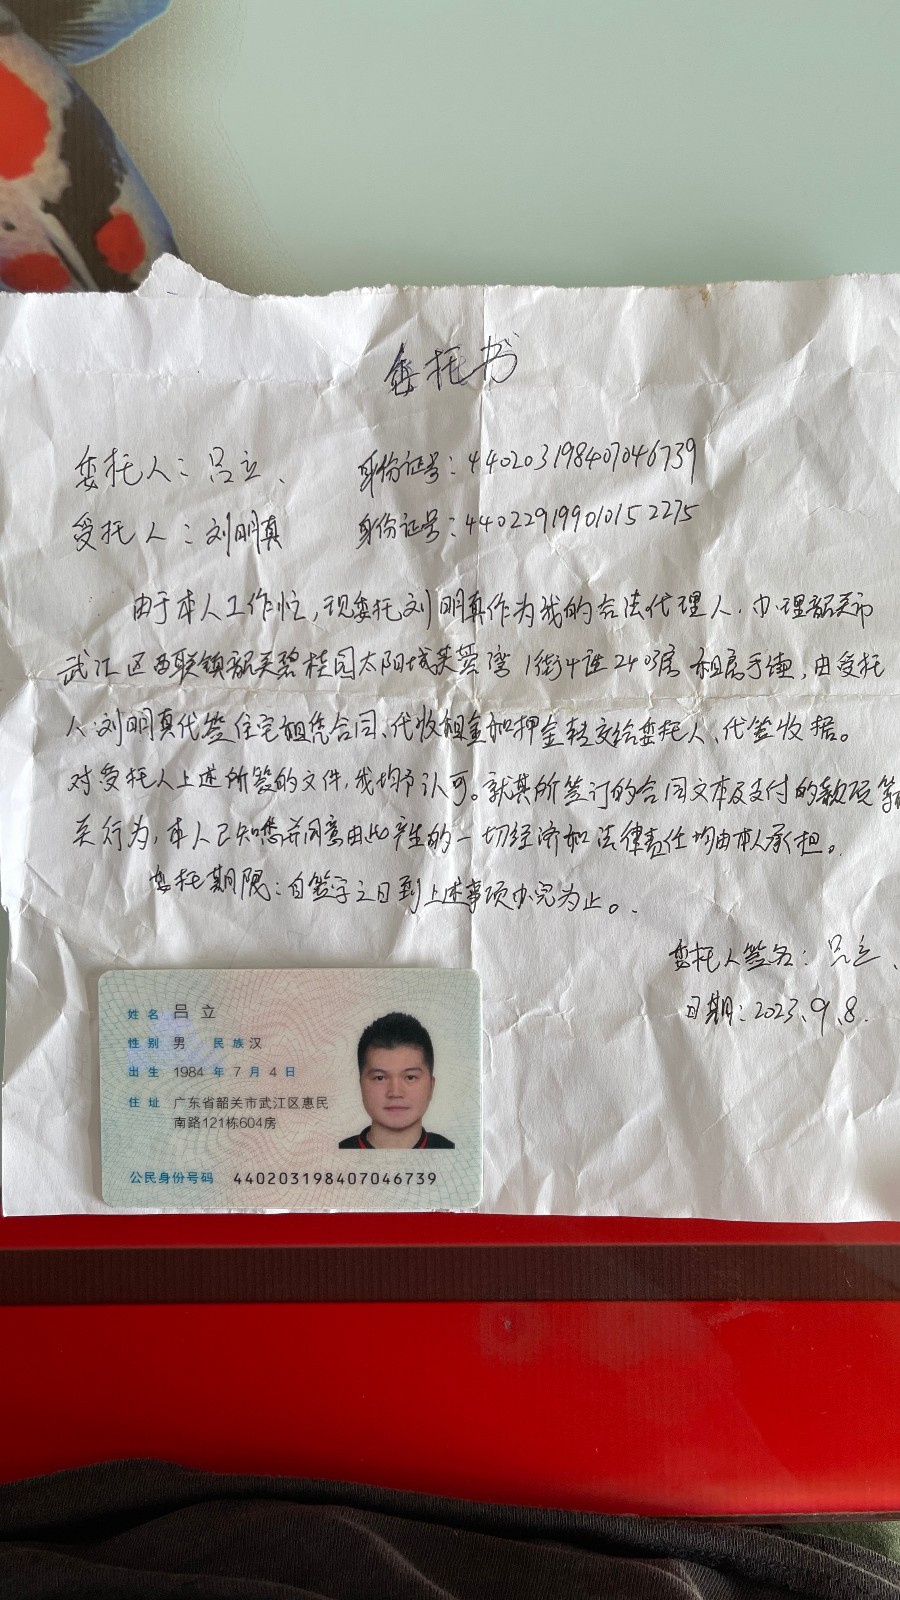 委托书
委托人：吕立、 身份证号：440203198407046739
受托人：刘明真 身份证号：440229199010152275
由于本人工作忙，现委托刘明真作为我的合法代理人，办理韶关市
武江区西联镇韶关碧桂园太阳城芙蓉湾1街4座2403房租房手续，由受托
人：刘明真代签住宅租凭合同、代收租金和押金转交给委托人、代签收据。
对受托人上述所签的文件，我均予认可。就其所签订的合同文本及支付的款项等
关行为，本人已知悉并同意由此产生的一切经济和法律责任均由本人承担。
委托期限：自签字之日到上述事项办完为止。
委托人签名：吕立、
日期：2023、9、8.
姓名 吕立
性别 男 民族 汉
出生 1984年7月4日
住址 广东省韶关市武江区惠民
南路121栋604房
公民身份号码 440203198407046739